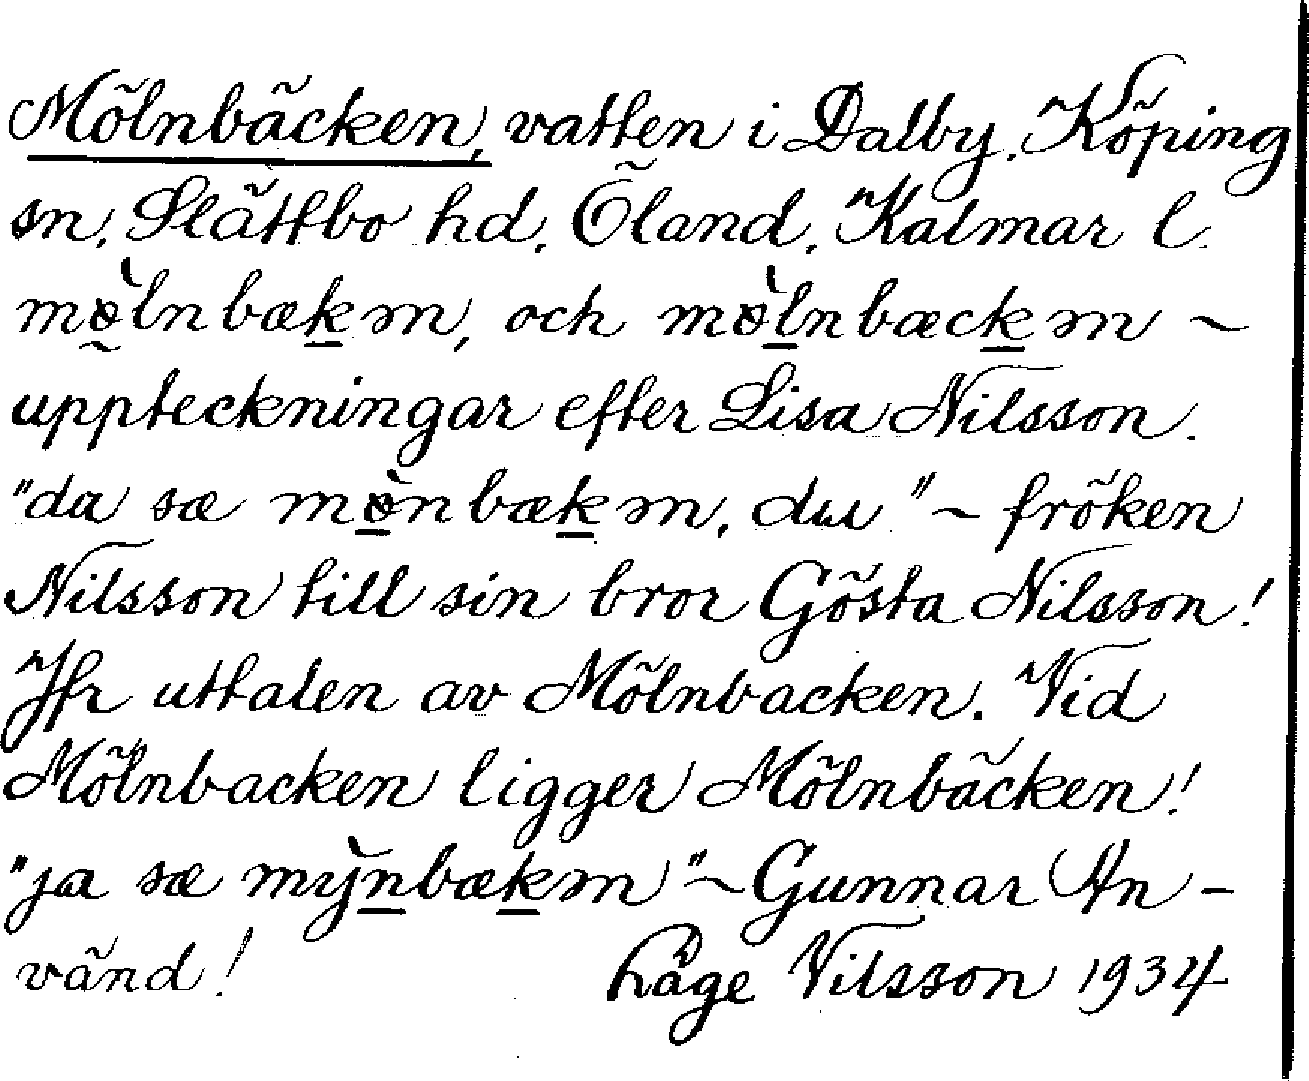 Mölnbäcken, vatten i Dalby. Köping
sn. Slättbo hd. Öland. Kalmar l.
mø̀lnbækm, och mø̀lnbæckm ~
uppteckningar efter Lisa Nilsson.
"da sæ mø̀nbækm, du" ~ fröken
Nilsson till sin bror Gösta Nilsson!
Jfr uttalen av Mölnbacken. Vid
Mölnbacken ligger Mölnbäcken!
"ja sæ mỳnbækm" ~ Gunnar An-
vänd! Håge Nilsson 1934